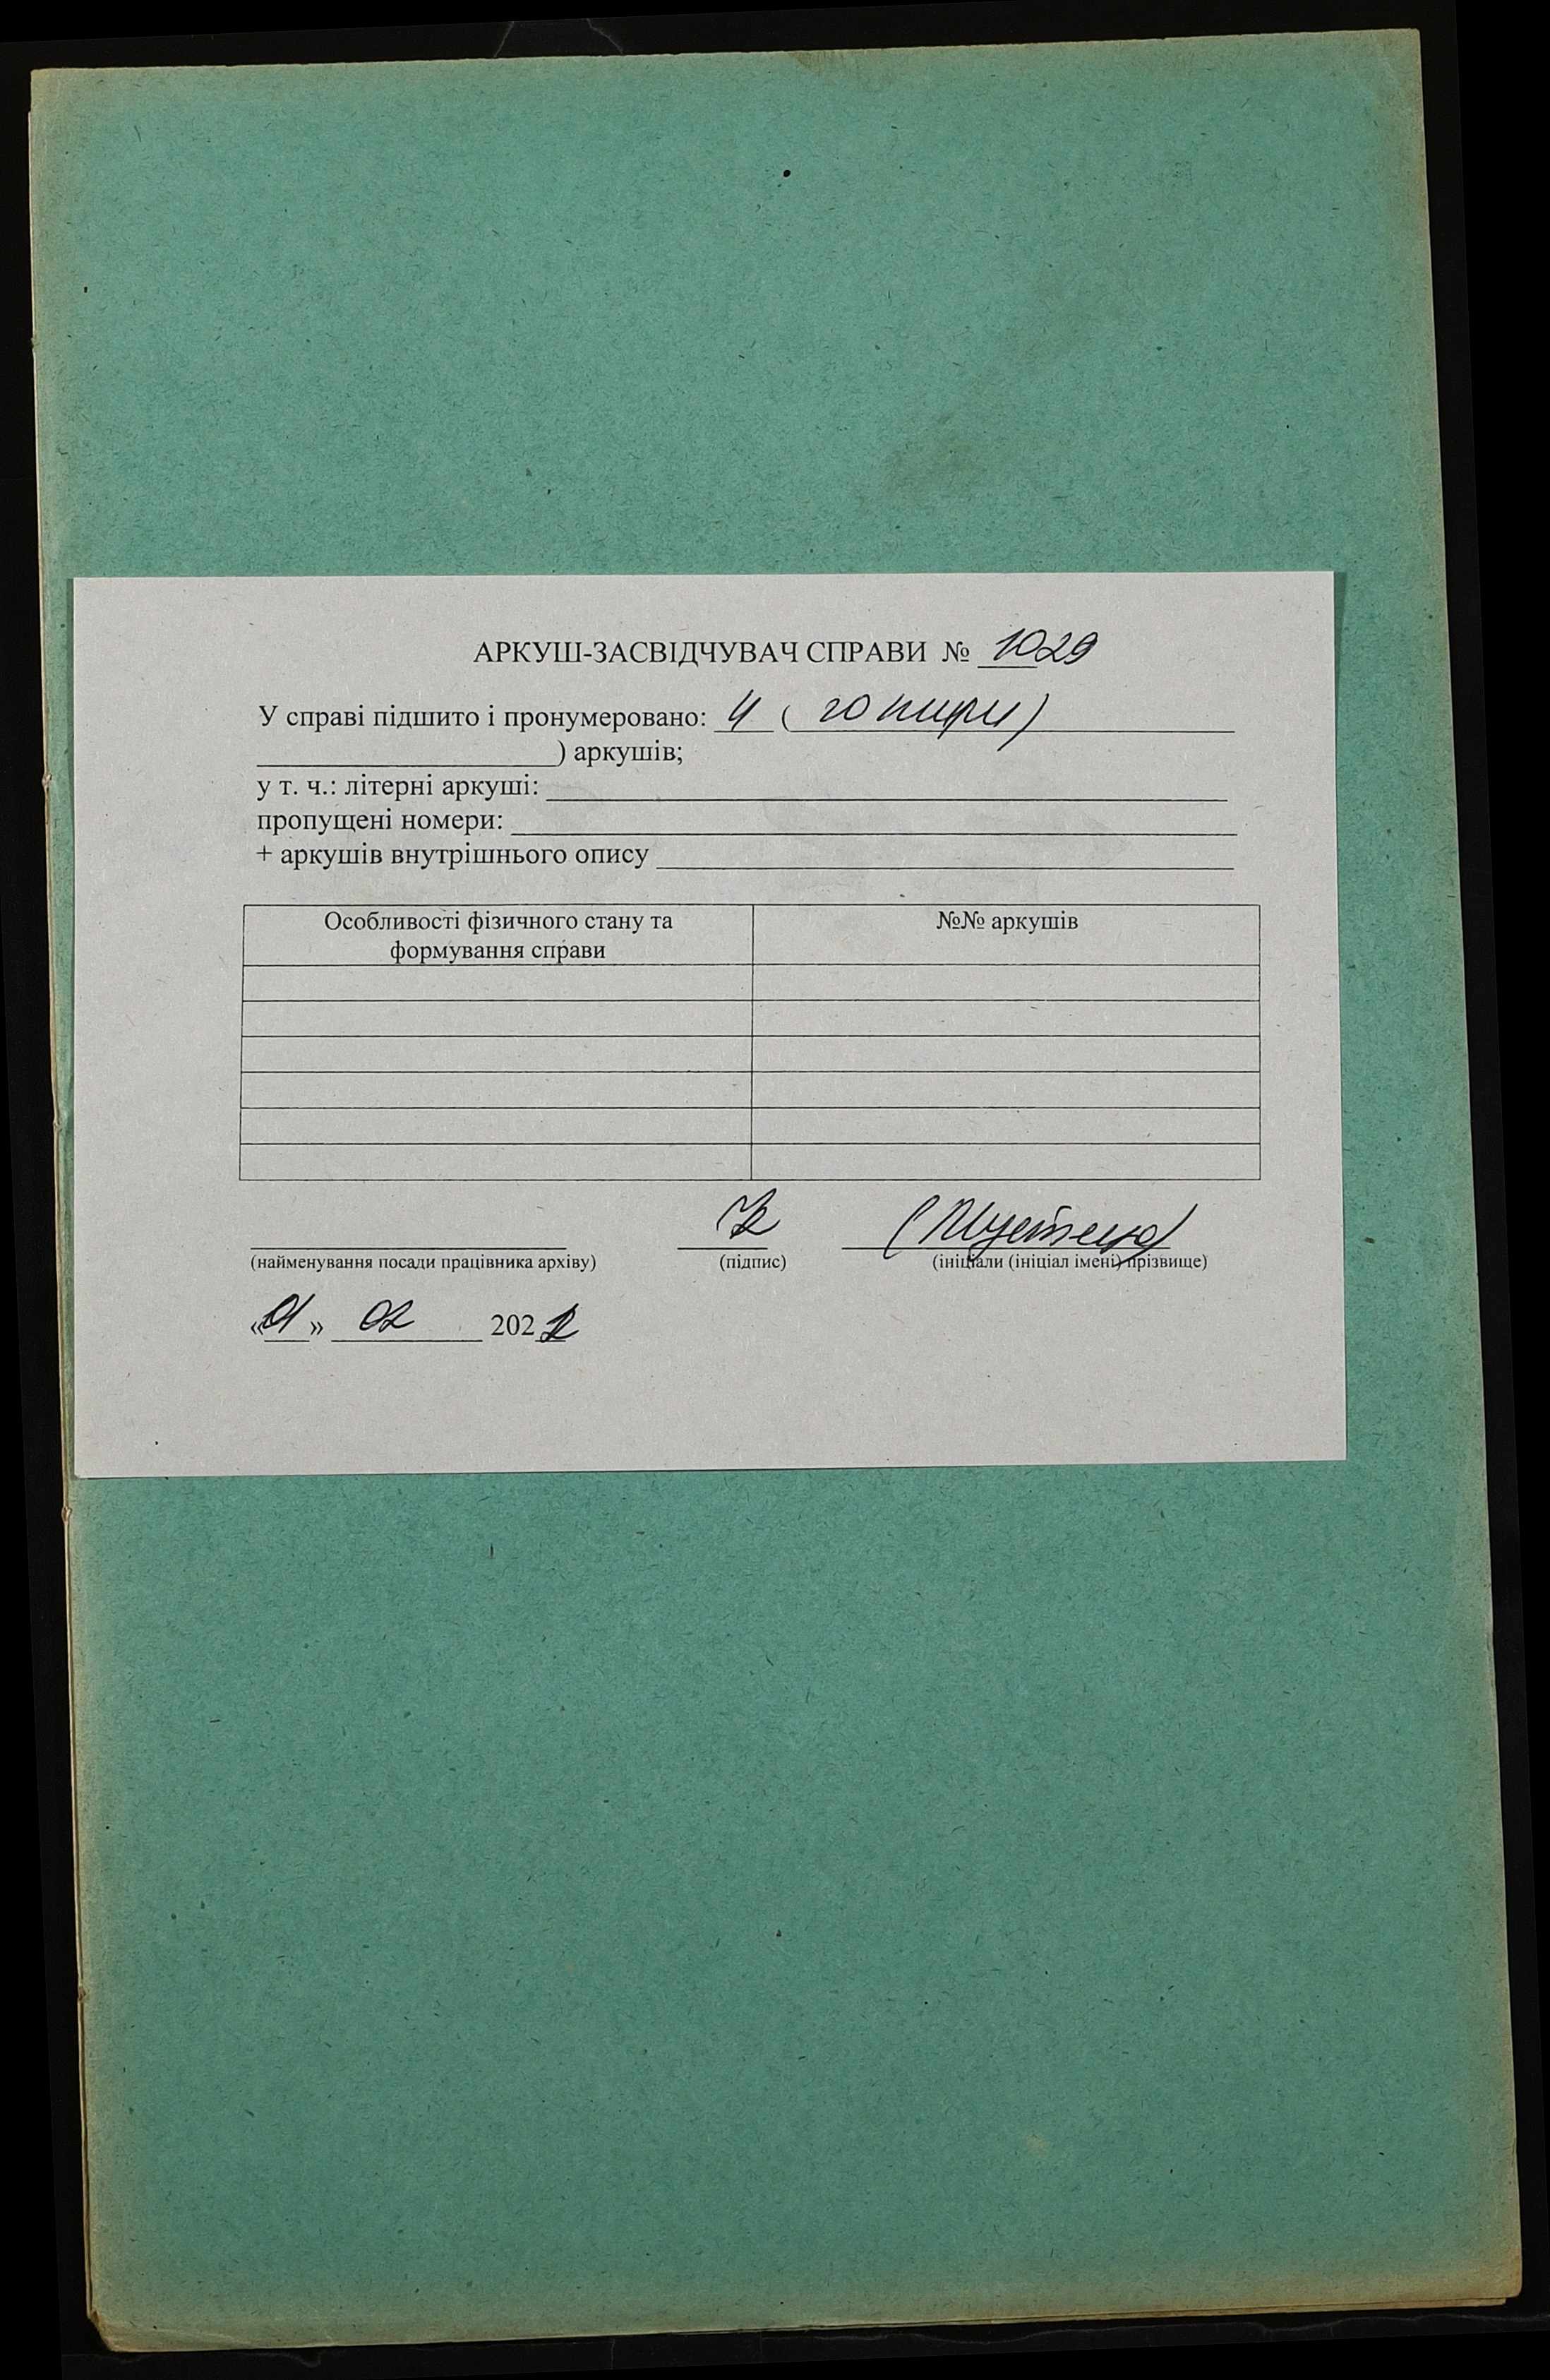 АРКУШ-ЗАСВІДЧУВАЧ СПРАВИ № 1029
У справі підшито і пронумеровано: 4 ( чотири)
) аркушів;
у т. ч.: літерні аркуші:
пропущені номери:
+ аркушів внутрішнього опису
Особливості фізичного стану та
формування справи
№№ аркушів
(найменування посади працівника архіву)
(підпис)
(ініціали (ініціал імені) прізвище)
«01» 02 2022